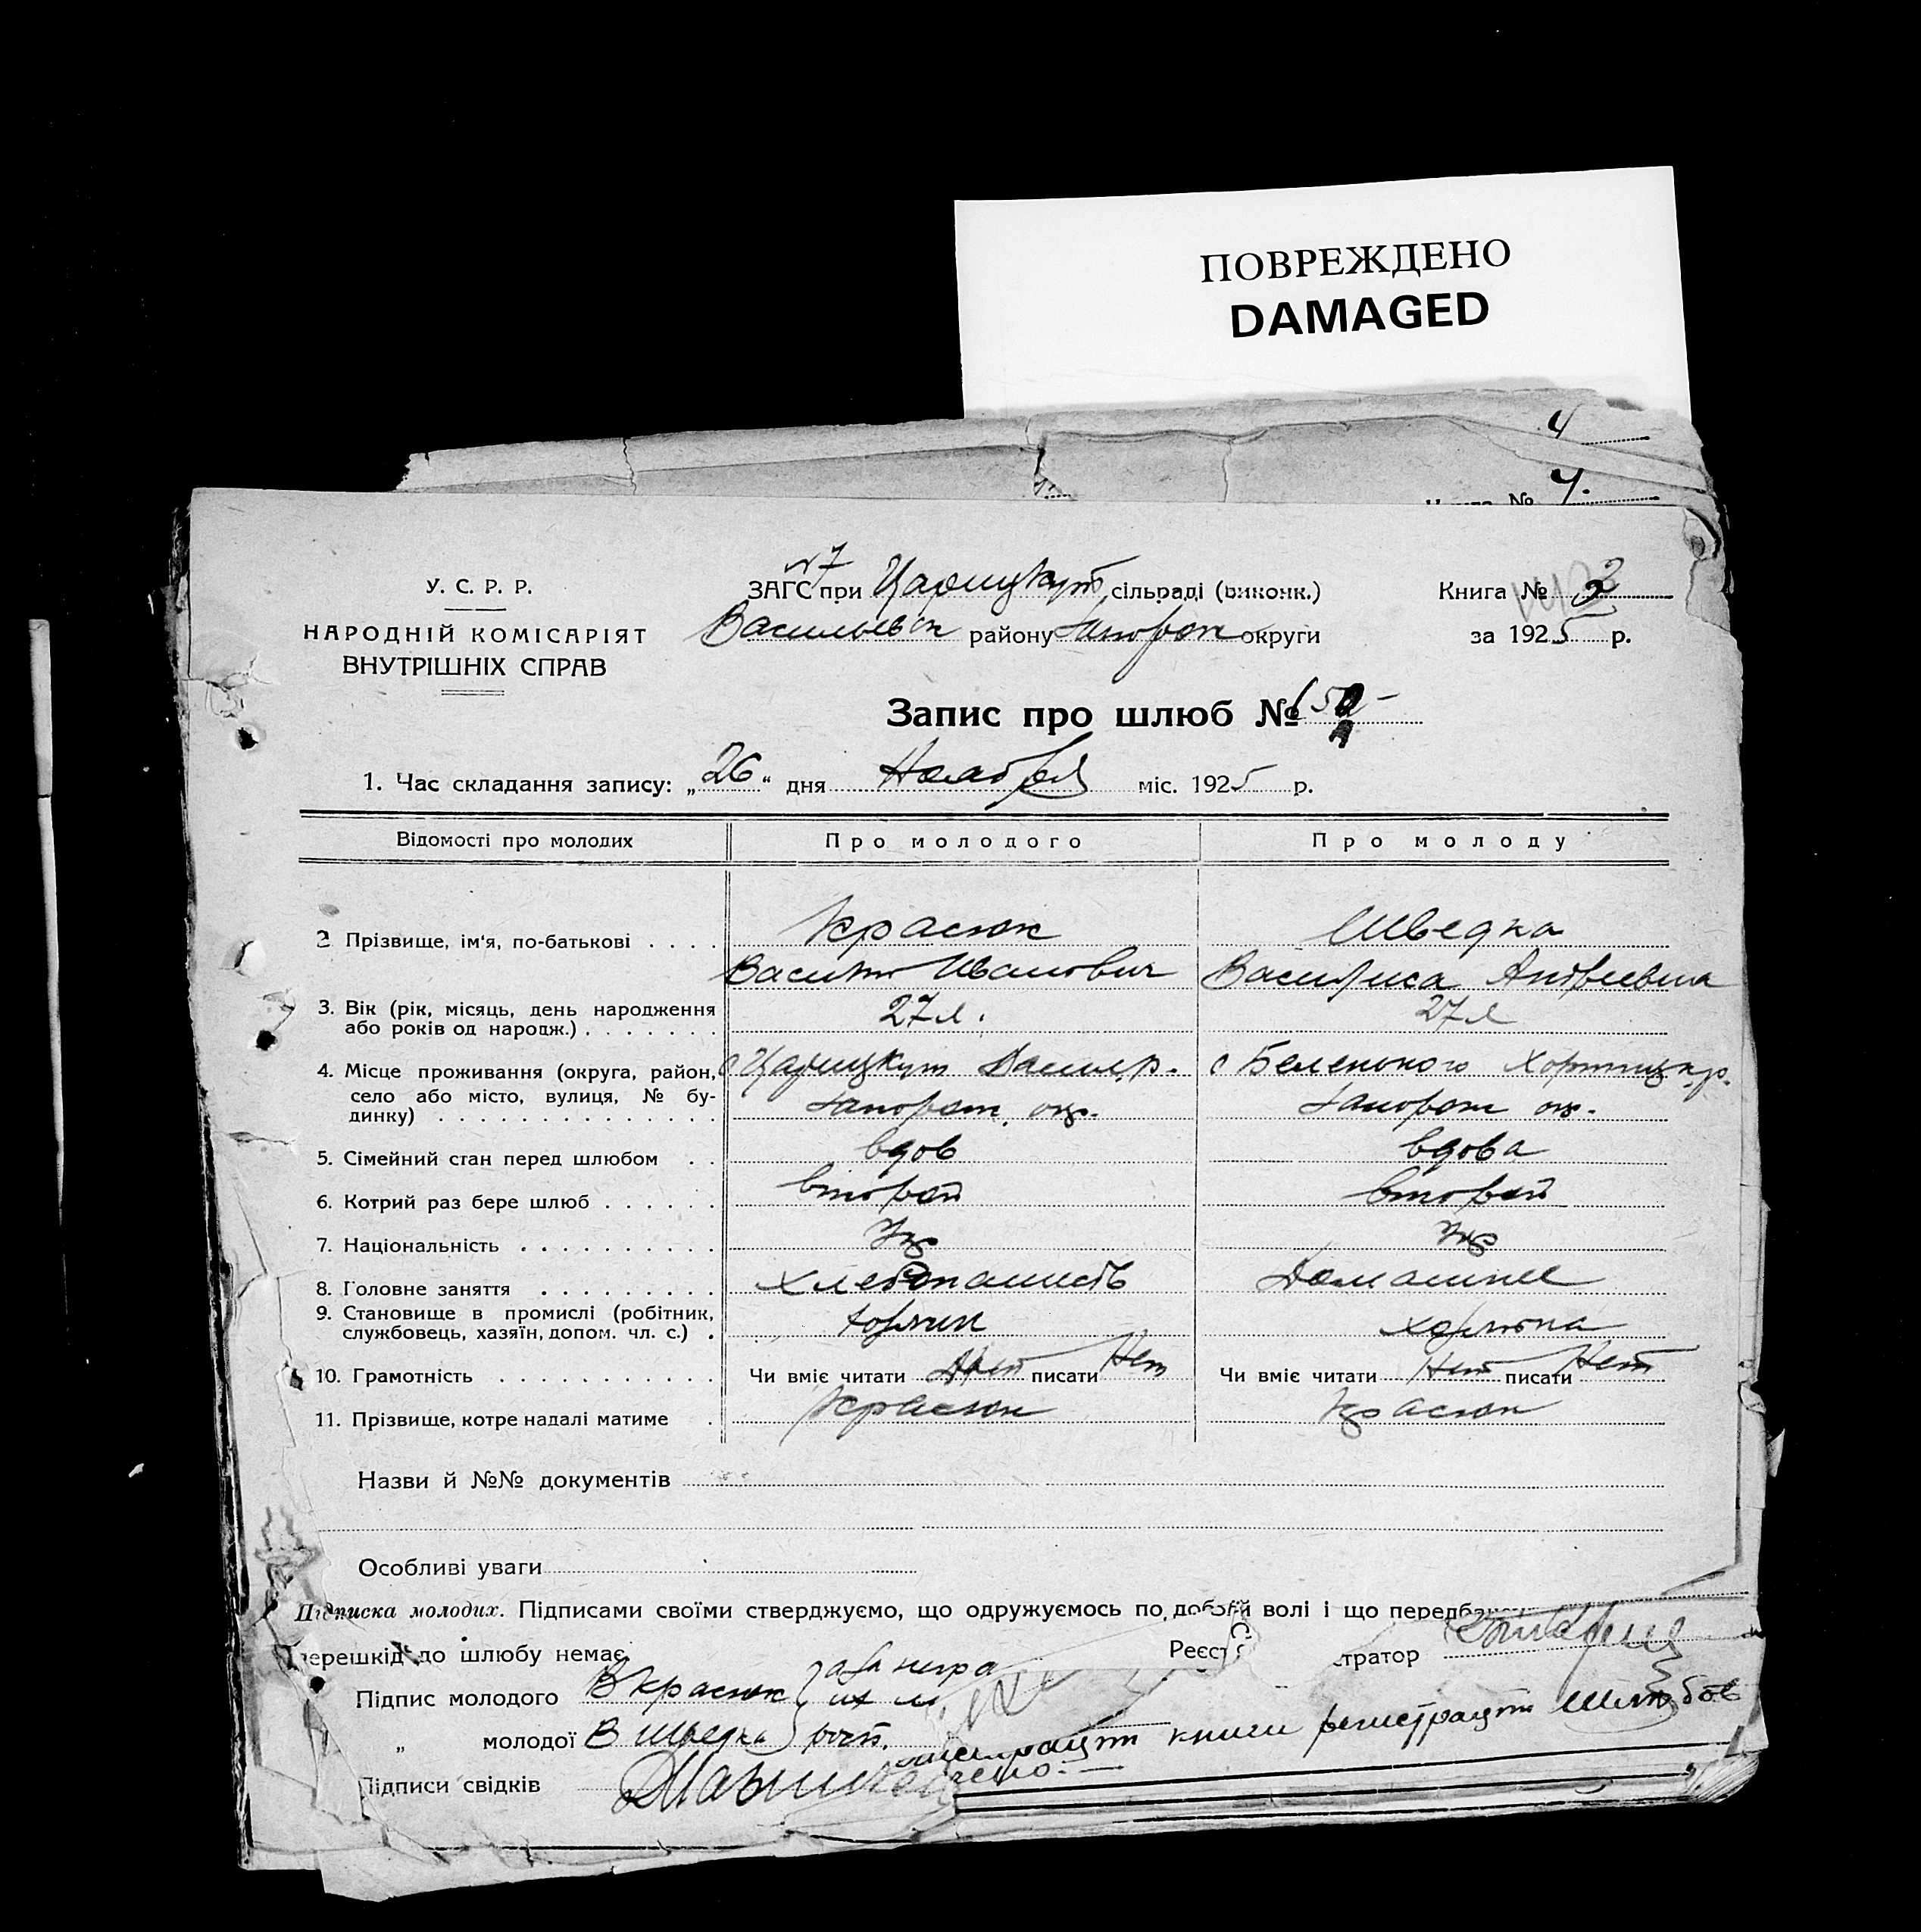 ПОВРЕЖДЕНО
DAMAGED
4
Книга № 4.
У. С. Р. Р.
НАРОДНІЙ КОМІСАРІЯТ
ВНУТРІШНІХ СПРАВ
№7
ЗАГС при Царицкут сільраді (виконк.)
Васильевск району Запорож округи
Книга № 2
за 1925 р.
Запис про шлюб №
1. Час складання запису: „26“ дня Ноября міс. 1925 р.
Відомості про молодих Про молодого Про молоду
2 Прізвище, ім'я, по-батькові . . . . Красюк Шведка
Василь Иванович Василиса Андреевна
3. Вік (рік, місяць, день народження 27 л. 27 л
або років од народж.) . . . . . . .
4. Місце проживання (округа, район, с Царицкут Васил. р. с Беленького Хортицк. р.
село або місто, вулиця, № бу- Запорож ок. Запорож ок.
динку) . . . . . . . . . . . . . .
5. Сімейний стан перед шлюбом . . вдов вдова
6. Котрий раз бере шлюб . . . . . . второй второй
7. Національність . . . . . . . . . . Укр Укр
8. Головне заняття . . . . . . . . . хлебопашеств Домашнее
9. Становище в промислі (робітник,
службовець, хазяїн, допом. чл. с.) .
10. Грамотність . . . . . . . . . . . Чи вміє читати писати Нет Чи вміє читати Нет писати Нет
11. Прізвище, котре надалі матиме . Красюк Красюк
Назви й №№ документів
Особливі уваги
Підписка молодих. Підписами своїми стверджуємо, що одружуємось по добрій волі і що передбачен
перешкід до шлюбу немає.
Реєст
стратор
Підпис молодого В Красюк
„ молодої В Шведка
книги регистрации Шлюбов
Підписи свідків